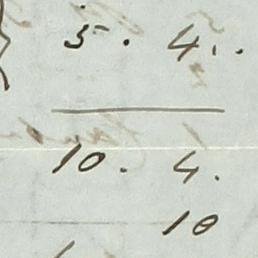 5. 4..
10. 4.
10